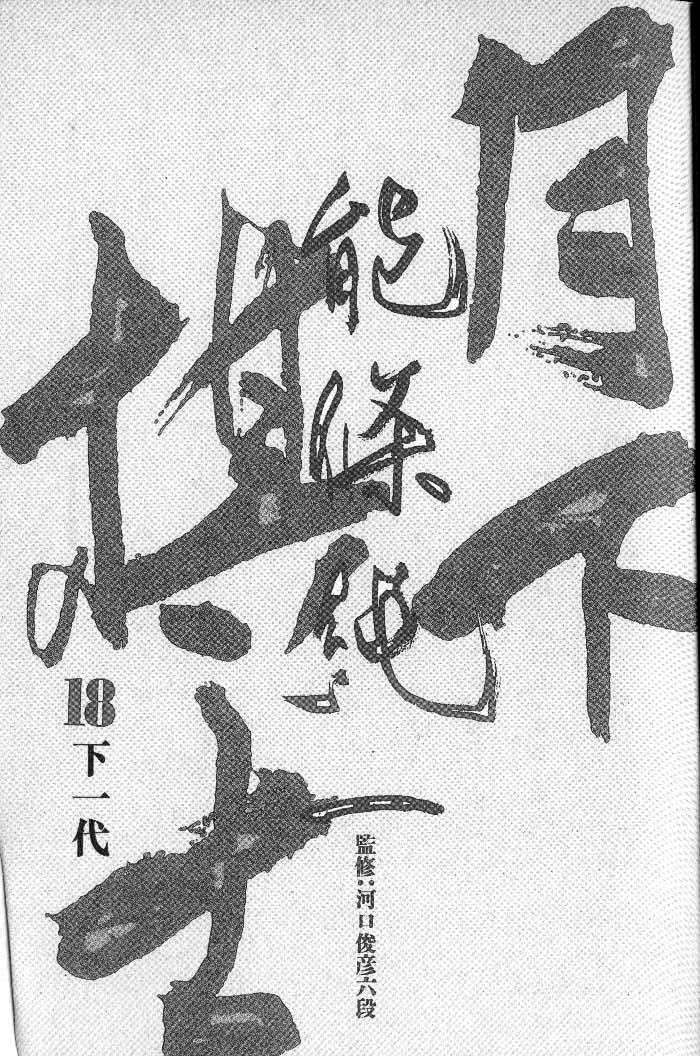 月下
棋士
能條純一
18
下一代
監修:河口俊彦六段